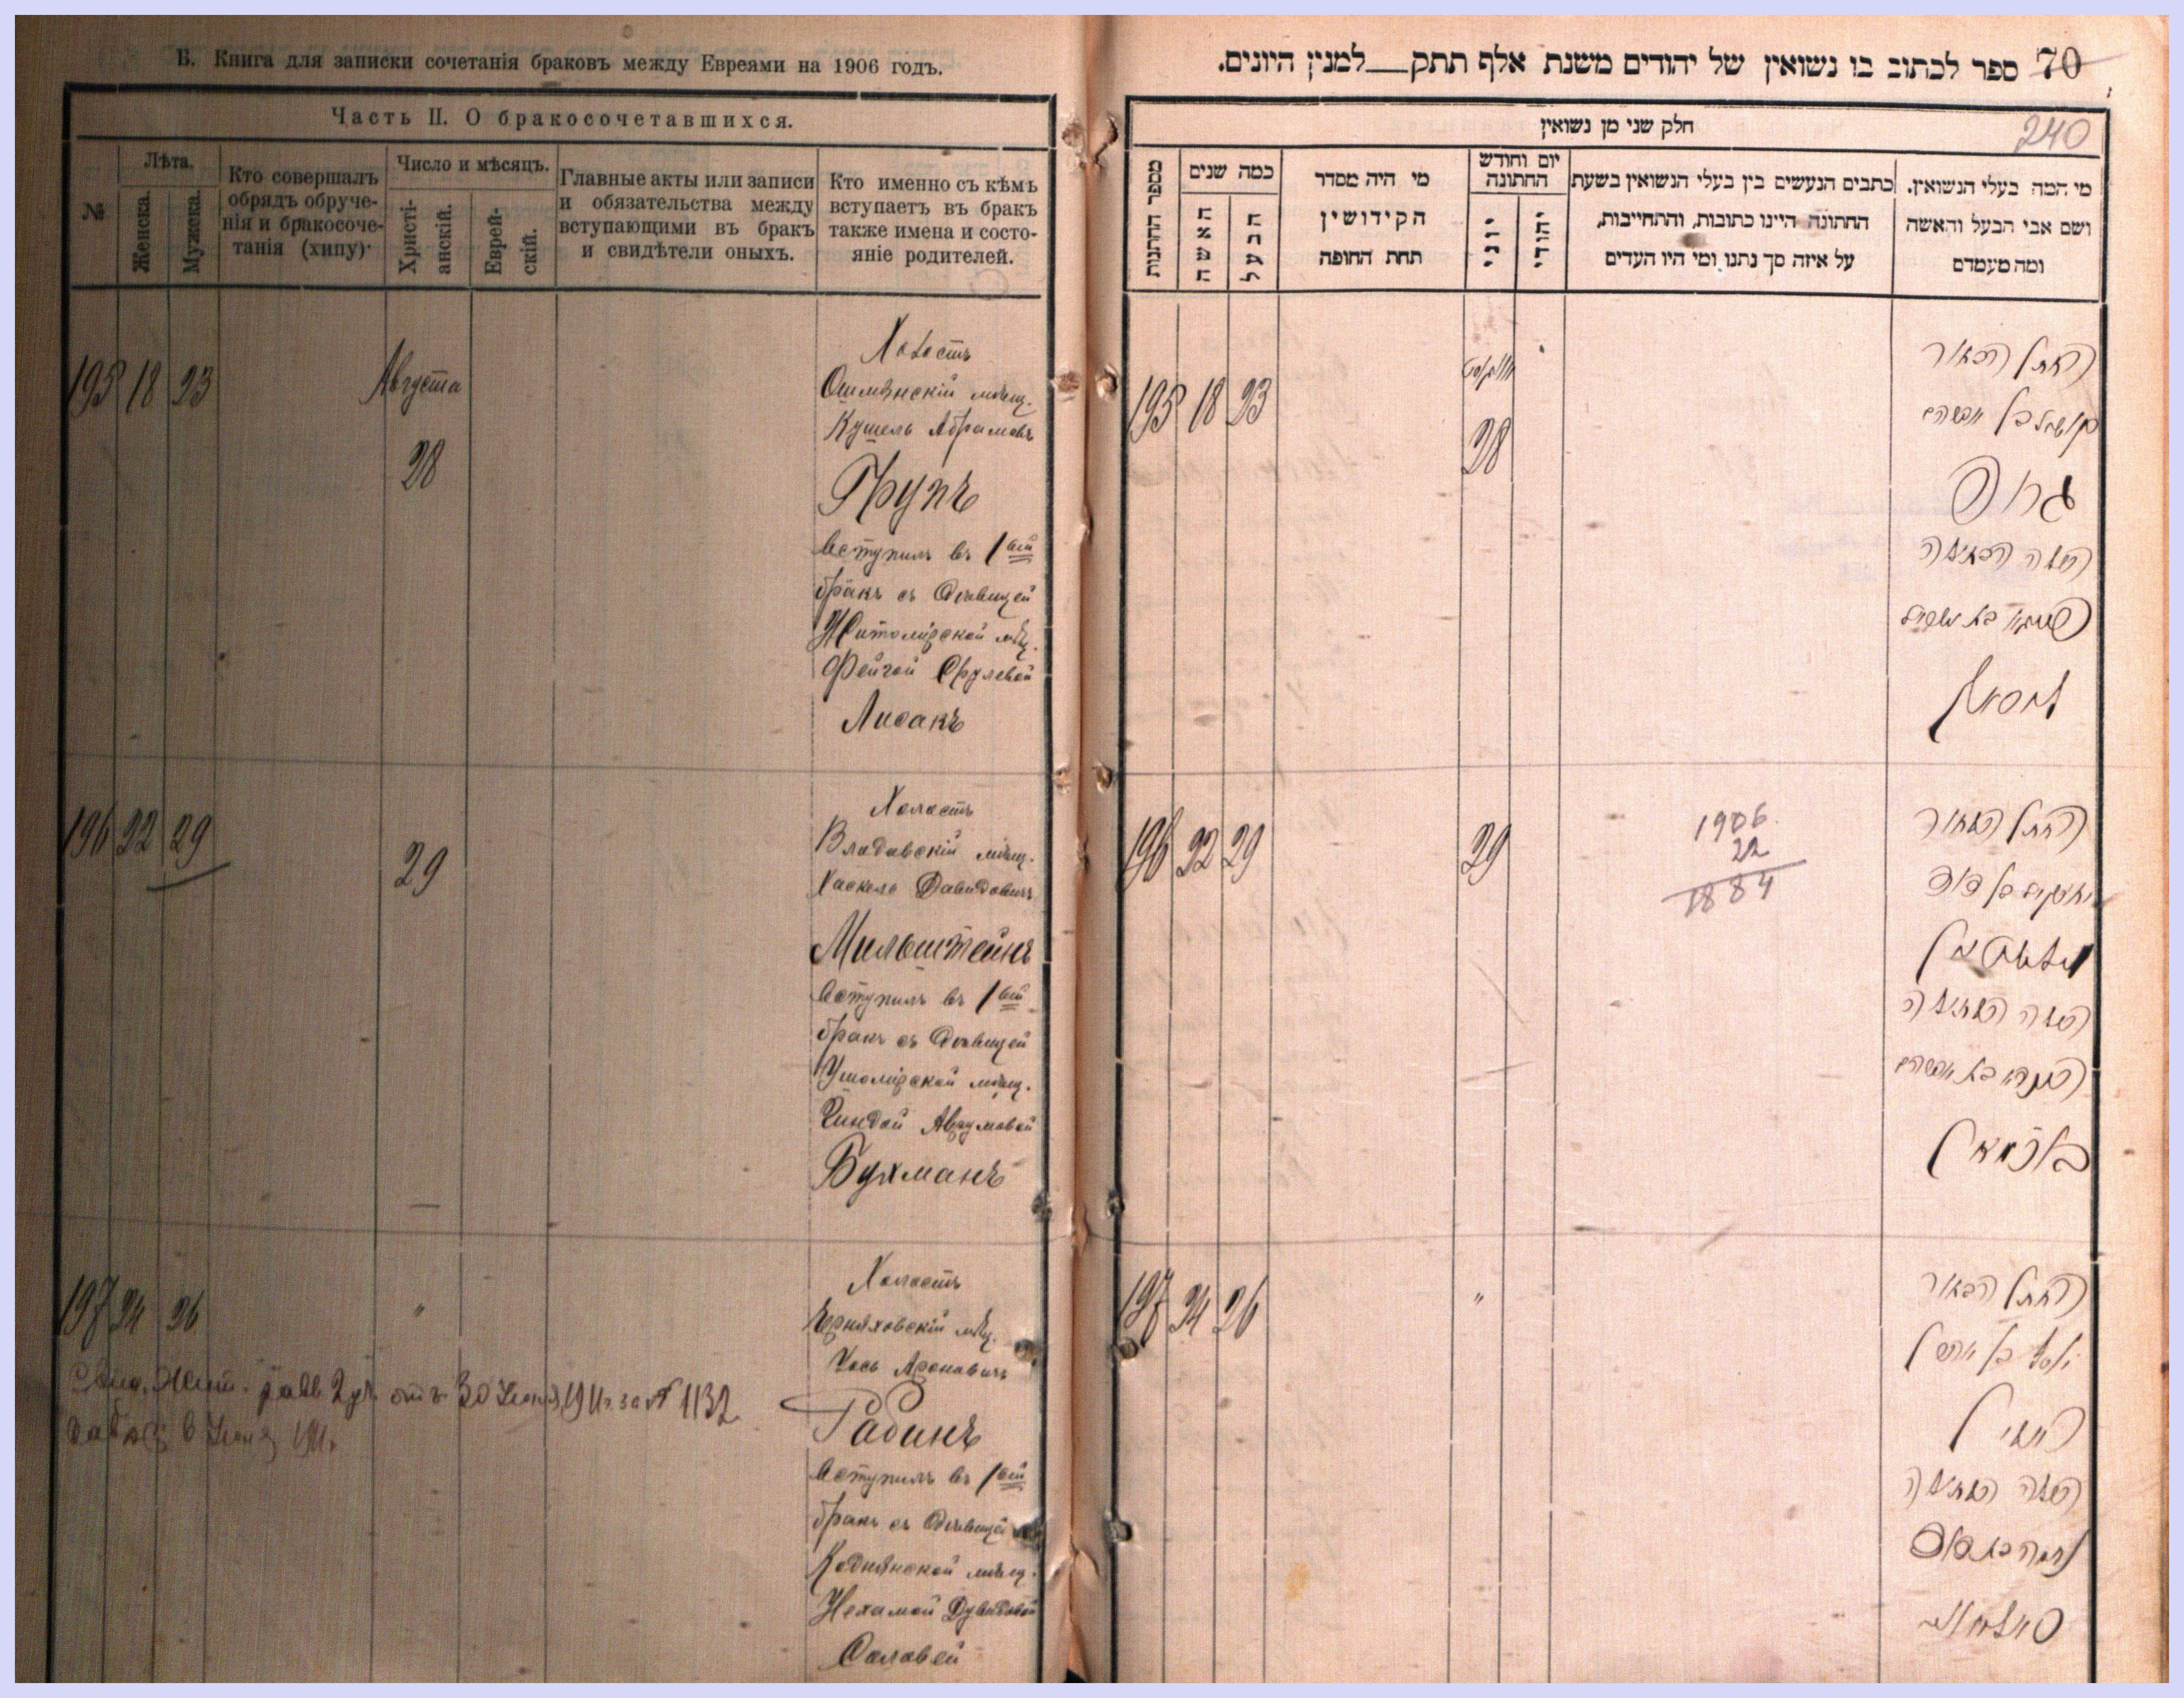 Б. Книга для записки сочетанія браковъ между Евреями на 1906 годъ.
Часть II. О бракосочетавшихся.
№
Лѣта.
Женска.
Мужска.
Кто совершалъ
обрядъ обруче-
нія и бракосоче-
танія (хипу)·
Число и мѣсяцъ.
Христі-
анскій.
Еврей-
скій.
Главные акты или записи
и обязательства между
вступающими въ бракъ
и свидѣтели оныхъ.
Кто именно съ кѣмъ
вступаетъ въ бракъ
также имена и состо-
яніе родителей.
195 18 23
Августа
28
Холостъ
Ошмянскій мѣщ.
Кушель Абрамовъ
Групъ
Вступилъ въ 1ый
бракъ съ Дѣвицей
Житомірской мѣщ.
Фейгой Срулевой
Лисакъ
196 22 29
29
Холостъ
Владавскій мѣщ.
Хаскель Давидовичъ
Мильштейнъ
Вступилъ въ 1ый
бракъ съ Дѣвицей
Ушомірской мѣщ.
Хиндой Аврумовой
Бухманъ
197 24 26
"
Холостъ
Черняховскій мѣщ.
Іось Ароновичъ
Рабинъ
Вступилъ въ 1ый
бракъ съ Дѣвицей
Коднянской мѣщ.
Нехамой Дувидовой
Соловей
отъ 30 1911 г. за № 1132
70 ספר לכתוב בו נשואין של יהודים משנת אלף תתק—למנין היונים.
240
חלק שני מן נשואין
מספר החתונות
כמה שנים
האשה
הבעל
מי היה מסדר
הקידושין
תחת החופה
יום וחודש
החתונה
יוני
יהודי
כתבים הנעשים בין בעלי הנשואין בשעת
החתונה היינו כתובות, והתחייבות,
על איזה סך נתנו ומי היו העדים
מי המה בעלי הנשואין.
ושם אבי הבעל והאשה
ומה מעמדם
195 18 23
אווגוסט
28
החתן הבחור
קושל בן אברהם
גרופ
עם הבתולה
בת ישראל
ליסאק
196 22 29
29
1906.
22
1884
החתן הבחור
יחזקאל בן דוד
מילשטיין
עם הבתולה
הינדא בת אברהם
בוכמאן
197 24 26
"
החתן הבחור
יוסף בן אהרן
ראבין
עם הבתולה
נחמה בת דוד
סאלאוויי